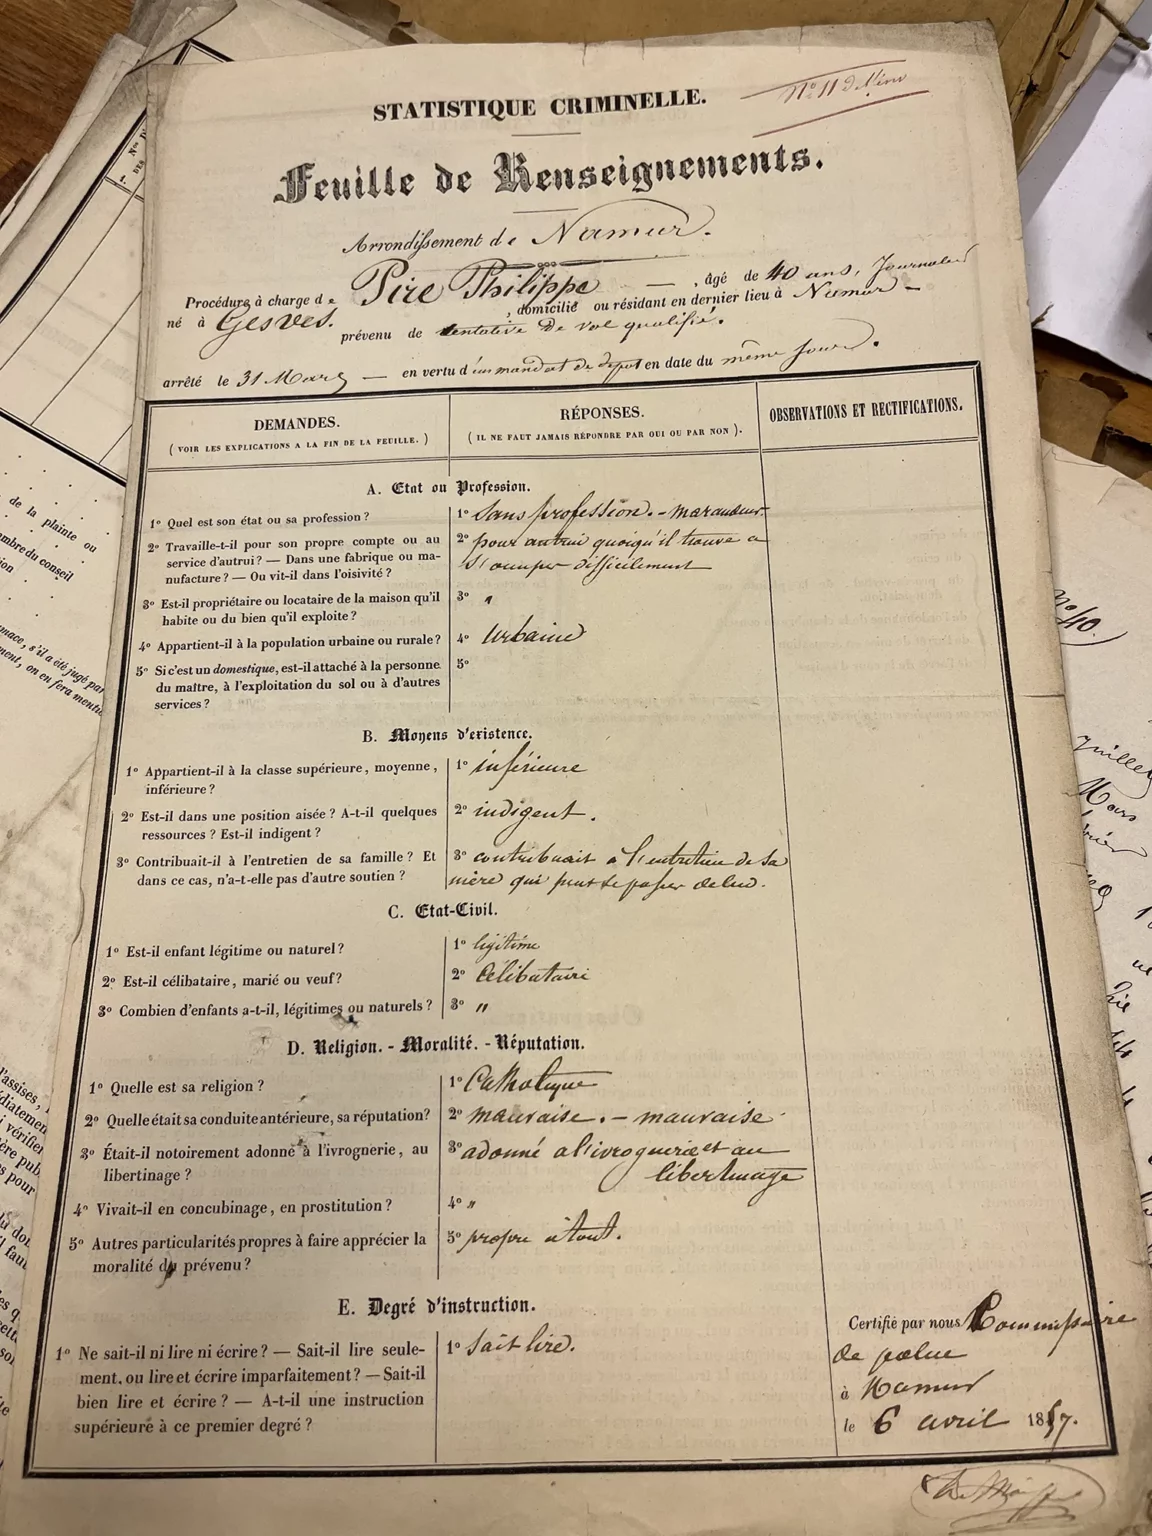 STATISTIQUE CRIMINELLE.
Nº 11
Feuille de Renseignements.
Arrondissement de Namur.
Procédure à charge de Pire Philippe — , âgé de 40 ans, Journalier
né à Gesves. , domicilié ou résidant en dernier lieu à Namur —
prévenu de tentative de vol qualifié.
arrêté le 31 Mars — en vertu d'un mandat de dépot en date du même jour.
DEMANDES.
(VOIR LES EXPLICATIONS A LA FIN DE LA FEUILLE.)
RÉPONSES.
(IL NE FAUT JAMAIS RÉPONDRE PAR OUI OU PAR NON).
OBSERVATIONS ET RECTIFICATIONS.
A. Etat ou Profession.
1º Quel est son état ou sa profession?
1º Sans profession. - maraudeur
2º Travaille-t-il pour son propre compte ou au
service d'autrui? — Dans une fabrique ou ma-
nufacture? — Ou vit-il dans l'oisiveté?
2º pour autrui quoiqu'il trouve a
s'occuper difficilement
3º Est-il propriétaire ou locataire de la maison qu'il
habite ou du bien qu'il exploite?
3º "
4º Appartient-il à la population urbaine ou rurale?
4º Urbaine
5º Si c'est un domestique, est-il attaché à la personne
du maître, à l'exploitation du sol ou à d'autres
services?
5º
B. Moyens d'existence.
1º Appartient-il à la classe supérieure, moyenne,
inférieure?
1º inférieure
2º Est-il dans une position aisée? A-t-il quelques
ressources? Est-il indigent?
2º indigent.
3º Contribuait-il à l'entretien de sa famille? Et
dans ce cas, n'a-t-elle pas d'autre soutien?
3º contribuait à l'entretien de sa
mère qui peut se passer de lui.
C. Etat-Civil.
1º Est-il enfant légitime ou naturel?
1º légitime
2º Est-il célibataire, marié ou veuf?
2º Célibataire
3º Combien d'enfants a-t-il, légitimes ou naturels?
3º "
D. Religion. - Moralité. - Réputation.
1º Quelle est sa religion?
1º Catholique
2º Quelle était sa conduite antérieure, sa réputation?
2º mauvaise. - mauvaise
3º Était-il notoirement adonné à l'ivrognerie, au
libertinage?
3º adonné a l'ivrognerie et au
libertinage
4º Vivait-il en concubinage, en prostitution?
4º "
5º Autres particularités propres à faire apprécier la
moralité du prévenu?
5º propre à tout.
E. Degré d'instruction.
1º Ne sait-il ni lire ni écrire? — Sait-il lire seule-
ment, ou lire et écrire imparfaitement? — Sait-il
bien lire et écrire? — A-t-il une instruction
supérieure à ce premier degré?
1º Sait lire.
Certifié par nous Commissaire
de police
à Namur
le 6 avril 1857.
de la plainte ou
mbre du conseil
Nº 40.
Juillet
Mars